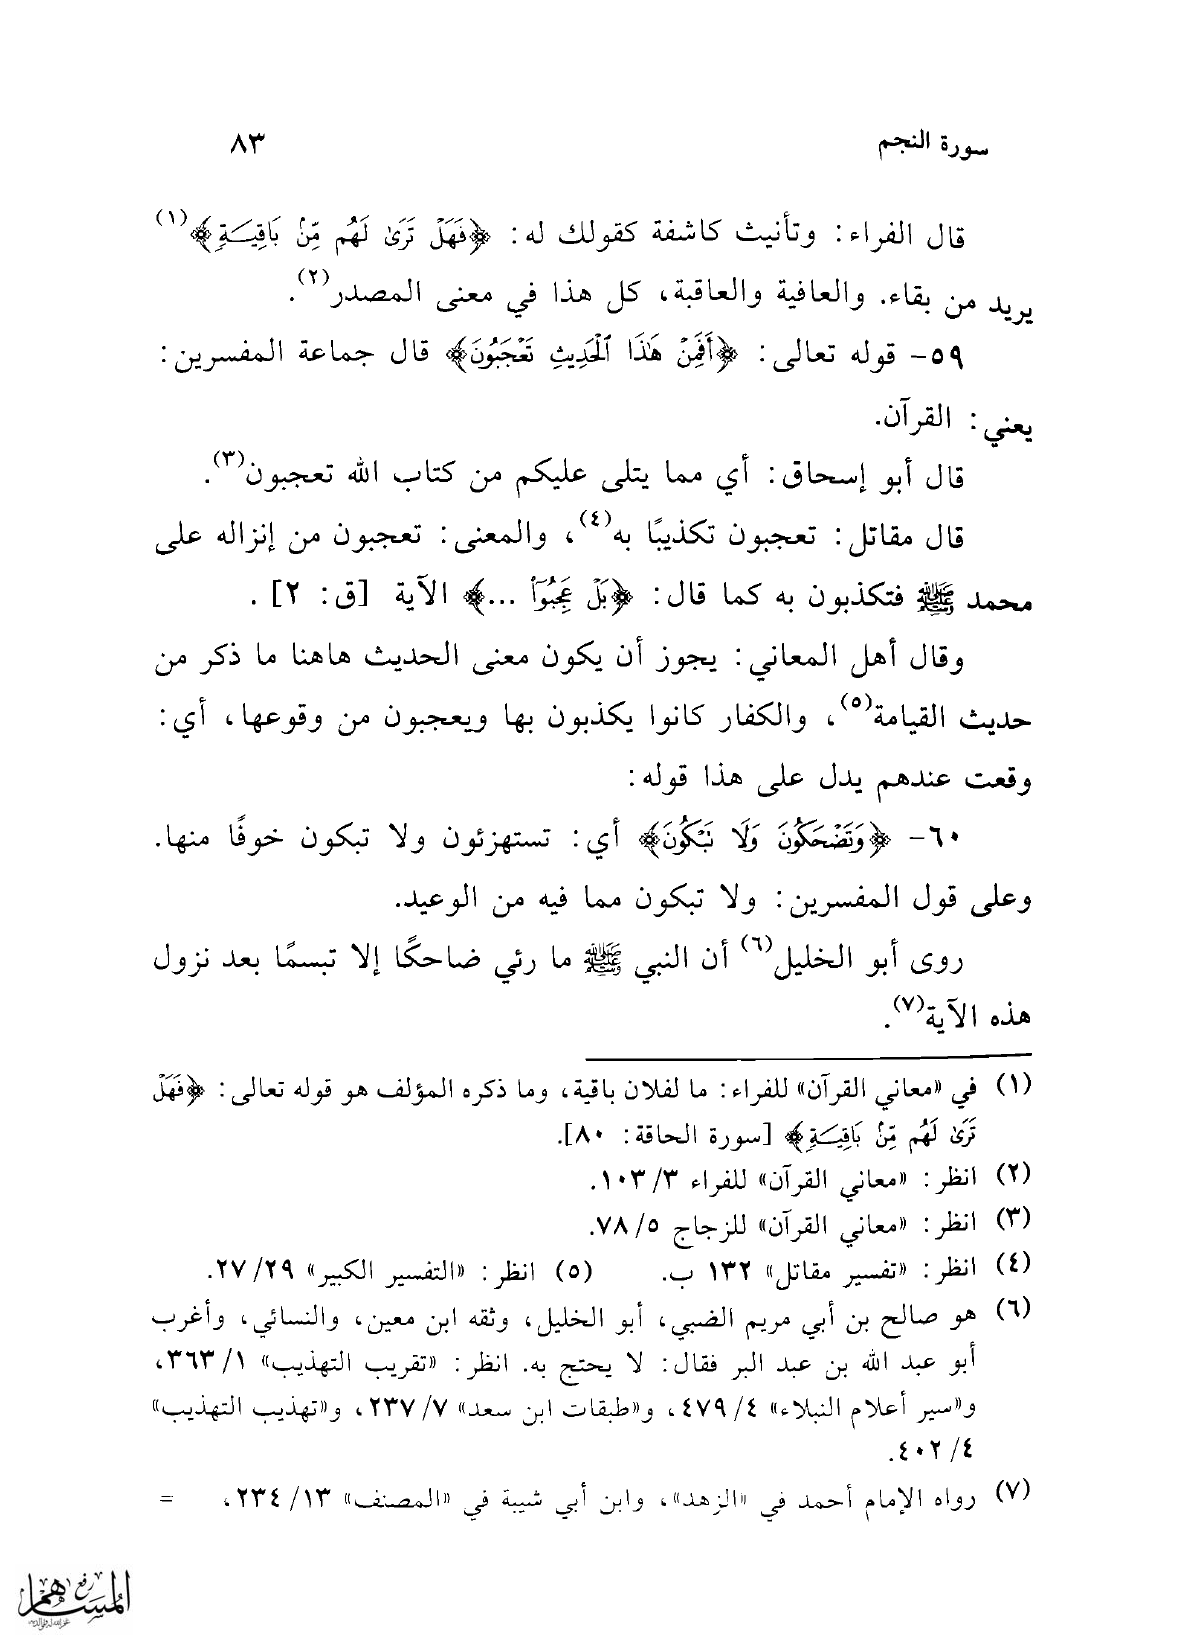 سورة النجم ٨٣
قال الفراء: وتأنيث كاشفة كقولك له: ﴿فَهَلْ تَرَىٰ لَهُم مِّنۢ بَاقِيَةٍ﴾(١)
يريد من بقاء. والعافية والعاقبة، كل هذا في معنى المصدر(٢).
٥٩- قوله تعالى: ﴿أَفَمِنْ هَٰذَا ٱلْحَدِيثِ تَعْجَبُونَ﴾ قال جماعة المفسرين:
يعني: القرآن.
قال أبو إسحاق: أي مما يتلى عليكم من كتاب الله تعجبون(٣).
قال مقاتل: تعجبون تكذيبًا به(٤)، والمعنى: تعجبون من إنزاله على
محمد ﷺ فتكذبون به كما قال: ﴿بَلْ عَجِبُوٓا۟ ...﴾ الآية [ق: ٢] .
وقال أهل المعاني: يجوز أن يكون معنى الحديث هاهنا ما ذكر من
حديث القيامة(٥)، والكفار كانوا يكذبون بها ويعجبون من وقوعها، أي:
وقعت عندهم يدل على هذا قوله:
٦٠- ﴿وَتَضْحَكُونَ وَلَا تَبْكُونَ﴾ أي: تستهزئون ولا تبكون خوفًا منها.
وعلى قول المفسرين: ولا تبكون مما فيه من الوعيد.
روى أبو الخليل(٦) أن النبي ﷺ ما رئي ضاحكًا إلا تبسمًا بعد نزول
هذه الآية(٧).
(١) في «معاني القرآن» للفراء: ما لفلان باقية، وما ذكره المؤلف هو قوله تعالى: ﴿فَهَلْ
تَرَىٰ لَهُم مِّنۢ بَاقِيَةٍ﴾ [سورة الحاقة: ٨٠].
(٢) انظر: «معاني القرآن» للفراء ٣/ ١٠٣.
(٣) انظر: «معاني القرآن» للزجاج ٥/ ٧٨.
(٤) انظر: «تفسير مقاتل» ١٣٢ ب. (٥) انظر: «التفسير الكبير» ٢٩/ ٢٧.
(٦) هو صالح بن أبي مريم الضبي، أبو الخليل، وثقه ابن معين، والنسائي، وأغرب
أبو عبد الله بن عبد البر فقال: لا يحتج به. انظر: «تقريب التهذيب» ١/ ٣٦٣،
و«سير أعلام النبلاء» ٤/ ٤٧٩، و«طبقات ابن سعد» ٧/ ٢٣٧، و«تهذيب التهذيب»
٤/ ٤٠٢.
(٧) رواه الإمام أحمد في «الزهد»، وابن أبي شيبة في «المصنف» ١٣/ ٢٣٤، =